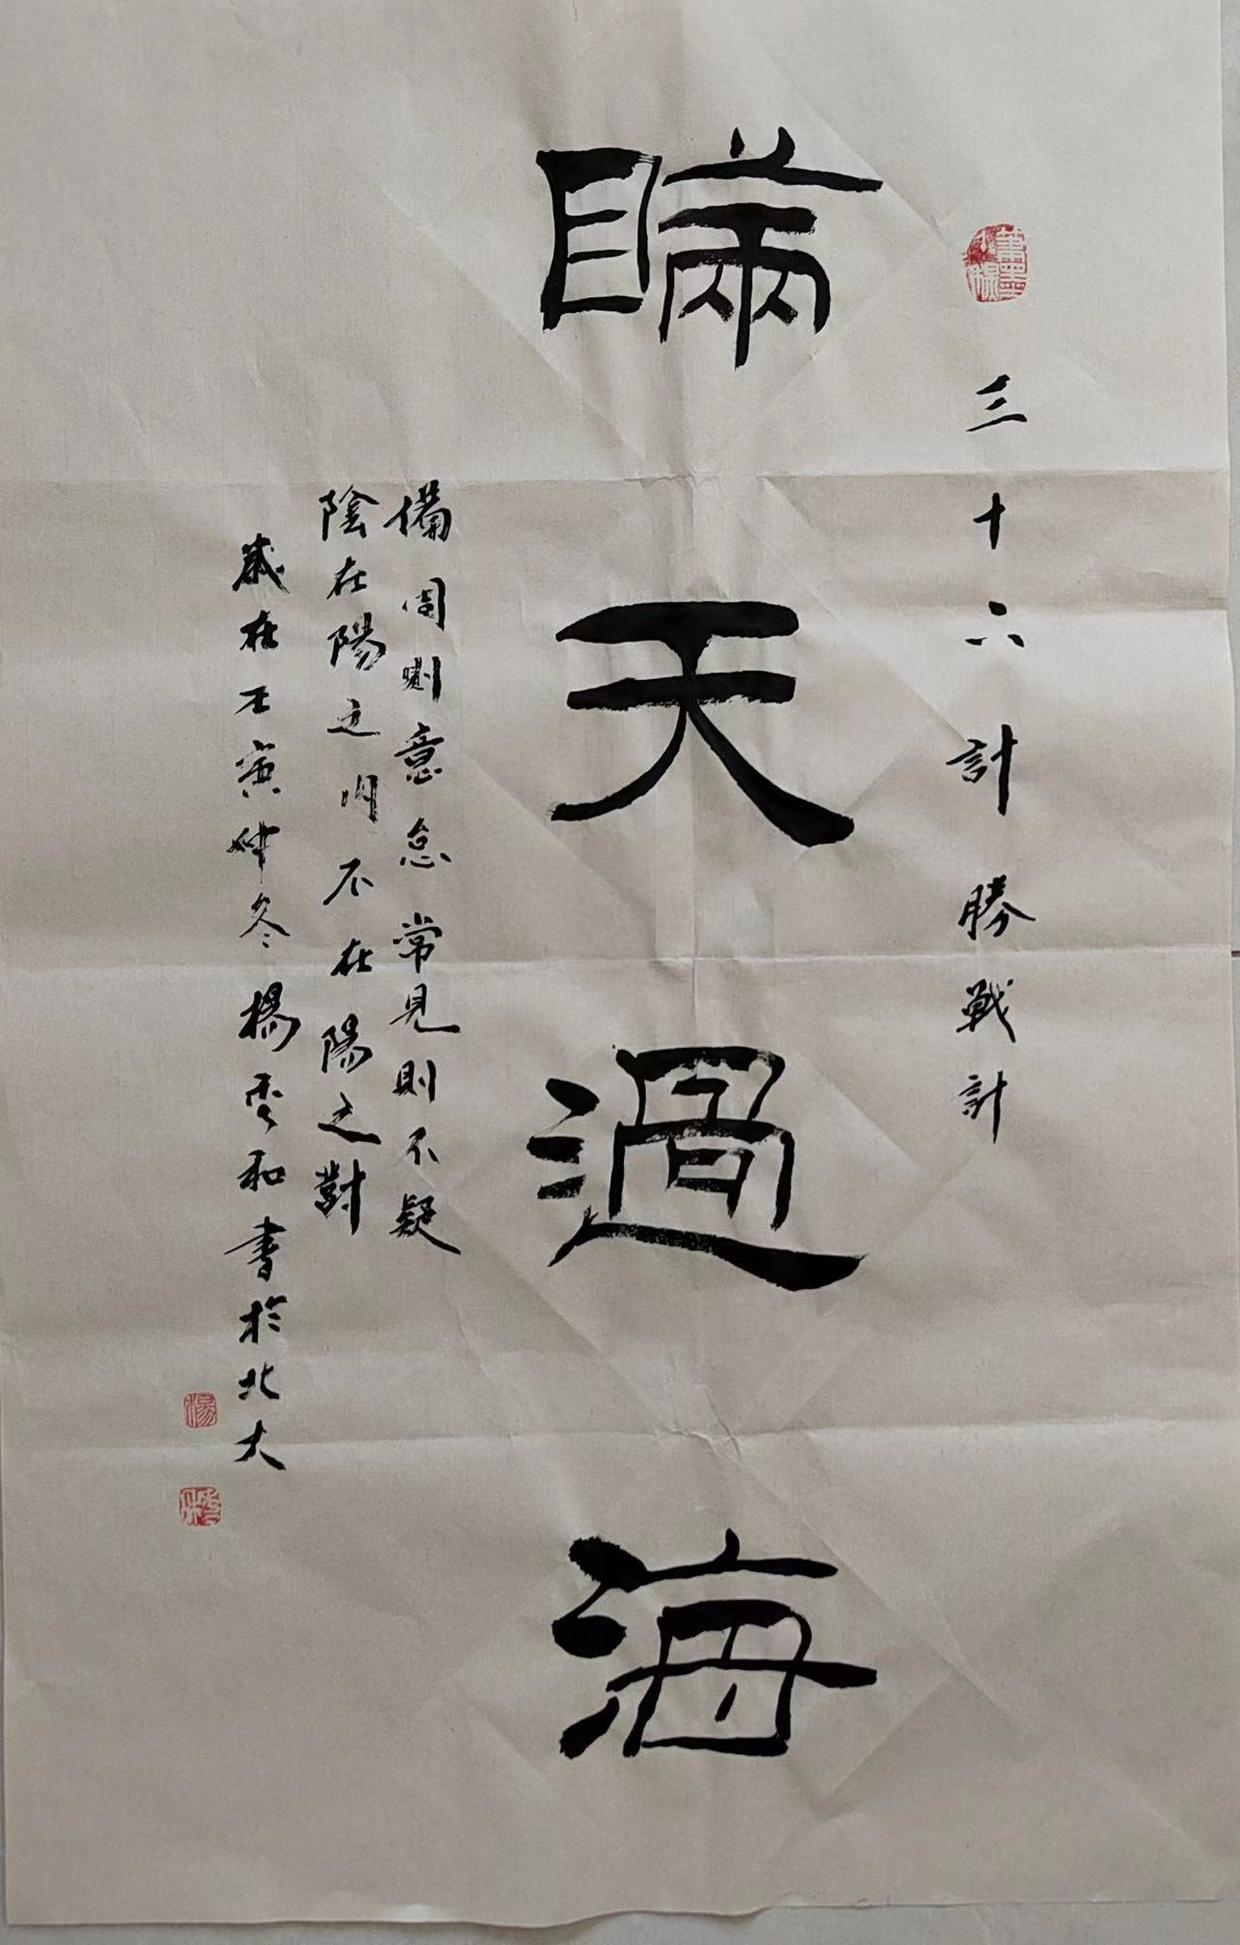 三十六計勝戰計
瞞天過海
備周則意怠常見則不疑
陰在陽之内不在陽之對
歲在壬寅仲冬楊雲和書於北大
楊